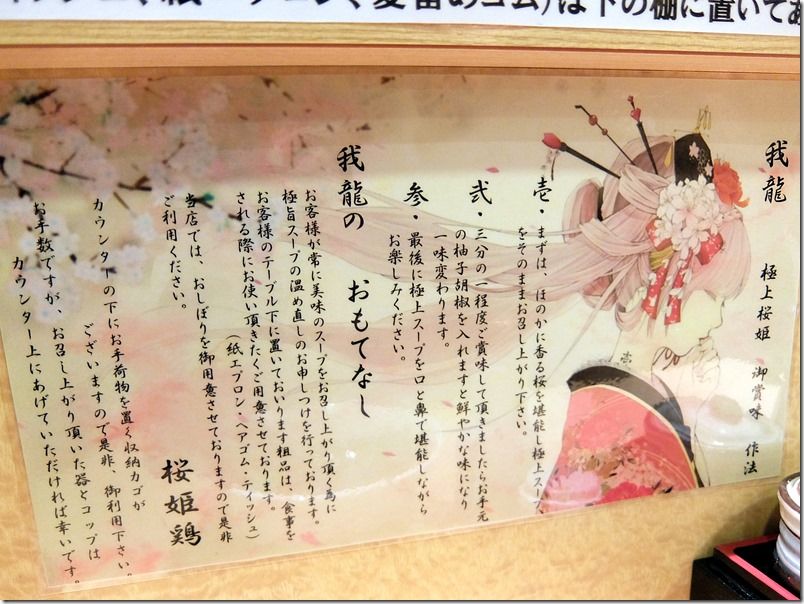 は下の棚に置いてあ
我龍　極上桜姫　御賞味　作法
壱・まずは、ほのかに香る桜を堪能し極上スープ、
をそのままお召し上がり下さい。
弐・三分の一程度ご賞味して頂きましたらお手元
の柚子胡椒を入れますと鮮やかな味になり
一味変わります。
参・最後に極上スープを口と鼻で堪能しながら
お楽しみください。
我龍の　おもてなし
お客様が常に美味のスープをお召し上がり頂く為に
極旨スープの温め直しのお申しつけを行っております。
お客様のテーブル下に置いておいります粗品は、食事を
される際にお使い頂きたくご用意させております。
（紙エプロン・ヘアゴム・ティッシュ）
当店では、おしぼりを御用意させておりますので是非
ご利用ください。
桜姫鶏
カウンターの下にお手荷物を置く収納カゴが
ございますので是非、御利用下さい。
お手数ですが、お召し上がり頂いた器とコップは
カウンター上にあげていただければ幸いです。